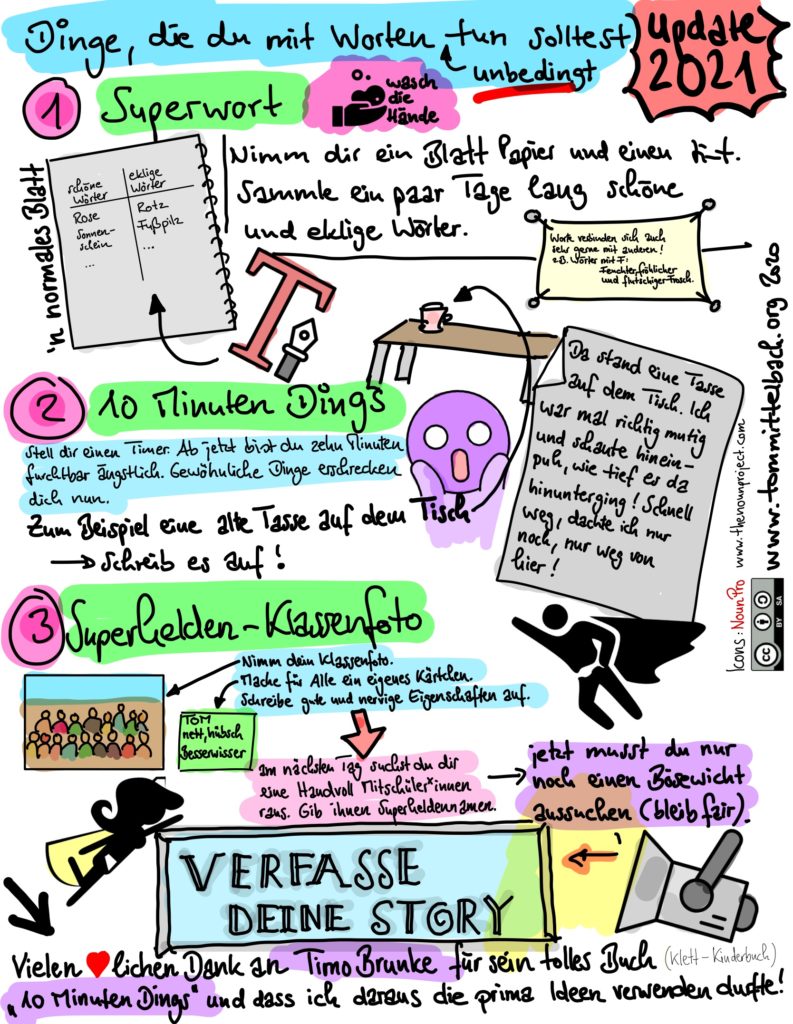 Dinge, die du mit Worten tun solltest
unbedingt
update
2021
1 Superwort
wasch
die
Hände
'n normales Blatt
schöne Wörter
eklige Wörter
Rose
Rotz
Sonnen-
schein
Fußpilz
...
...
Nimm dir ein Blatt Papier und einen
Sammle ein paar Tage lang schöne
und eklige Wörter.
Worte verbinden sich auch
sehr gerne mit anderen!
z.B. Wörter mit F:
Feuchter, fröhlicher
und flutschiger Frosch.
T
2 10 Minuten Dings
Stell dir einen Timer. Ab jetzt bist du zehn Minuten
furchtbar ängstlich. Gewöhnliche Dinge erschrecken
dich nun.
Zum Beispiel eine alte Tasse auf dem Tisch
→ Schreib es auf!
Da stand eine Tasse
auf dem Tisch. Ich
war mal richtig mutig
und schaute hinein-
puh, wie tief es da
hinunterging! Schnell
weg, dachte ich nur
noch, nur weg von
hier!
3 Superhelden-Klassenfoto
Nimm dein Klassenfoto.
Mache für Alle ein eigenes Kärtchen.
Schreibe gute und nervige Eigenschaften auf.
TOM
nett, hübsch
Besserwisser
am nächsten Tag suchst du dir
eine Handvoll Mitschüler*innen
raus. Gib ihnen Superheldennamen.
jetzt musst du nur
noch einen Bösewicht
aussuchen (bleib fair).
VERFASSE
DEINE STORY
Vielen ♥lichen Dank an Timo Brunke für sein tolles Buch (Klett-Kinderbuch)
„10 Minuten Dings" und dass ich daraus die prima Ideen verwenden durfte!
Icons: NounPro www.thenounproject.com
www.tommittelbach.org 2020
cc BY SA